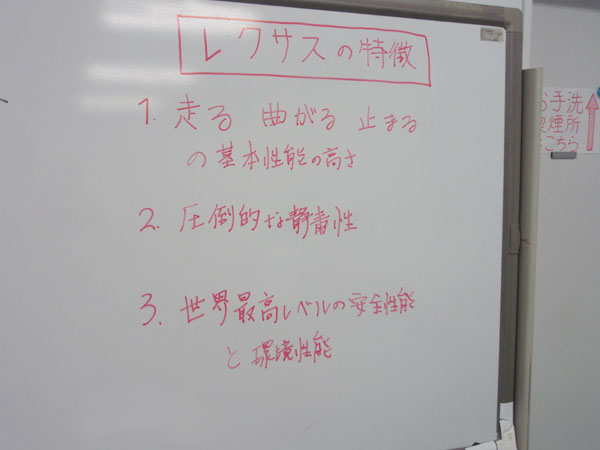 レクサスの特徴
1. 走る 曲がる 止まる
の基本性能の高さ
2. 圧倒的な静粛性
3. 世界最高レベルの安全性能
と環境性能
お手洗
喫煙所
はこちら